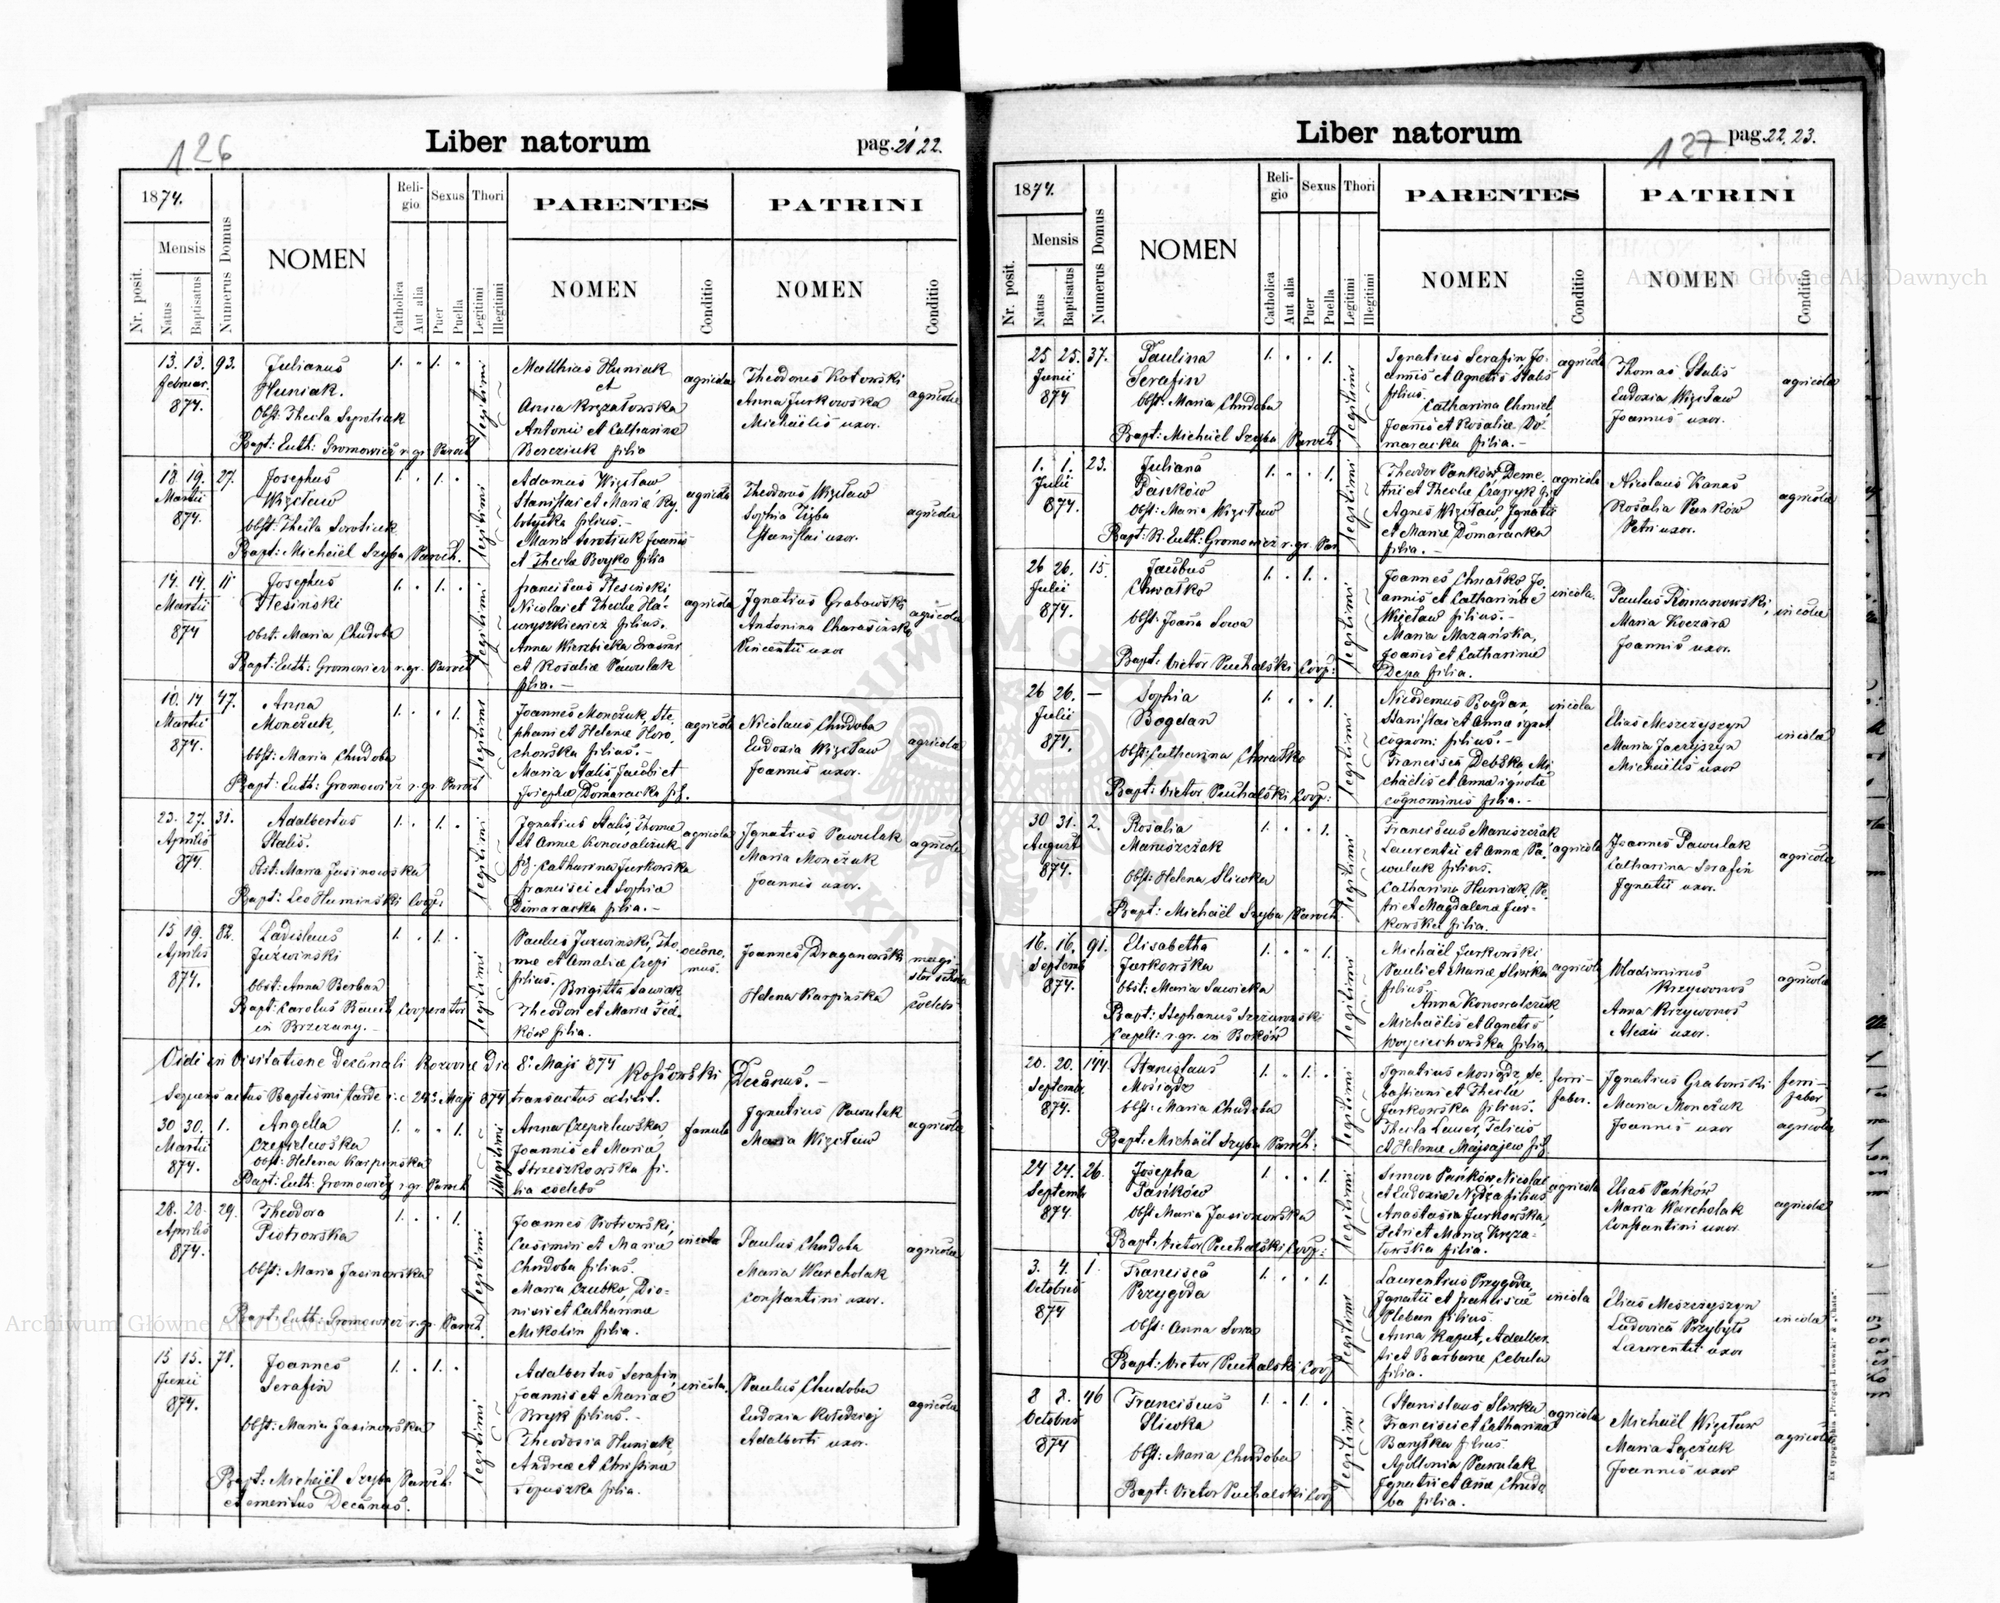 126
Liber natorum
pag. 21 22.
1874.
Nr. posit.
Mensis
Natus
Baptisatus
Numerus Domus
NOMEN
Religio
Catholica
Aut alia
Sexus
Puer
Puella
Thori
Legitimi
Illegitimi
PARENTES
NOMEN
Conditio
PATRINI
NOMEN
Conditio
13. 13. 93.
Februar.
874.
Julianus
Huniak.
Bapt: Euth: Gromowicz r. gr. Paroch
1. " 1. "
legitimi
Matthias Huniak
et
Anna Kręzałowska
Antonii et Catharina
Bereziuk filia
agricola
Theodorus Kotowski
Anna Jurkowska
Michaëlis uxor.
agricola
18. 19. 27.
Martii
874.
Josephus
Węcław
Bapt: Michaël Szyba Paroch.
legitimi
Adamus Węcław
Maria Sorotiuk Joannis
et Theclæ Boyko filia
agricola
Theodorus Węcław
Sophia Zięba
Stanislai uxor.
agricola
14. 14. 11.
Martii
874
Josephus
Stesiński
Obst: Maria Chudoba
Bapt: Euth: Gromowicz r. gr. Paroch
legitimi
Franciscus Stesiński
Anna Wierzbicka
et Rosaliæ Pawulak
filia.
agricola
Ignatius Grabowski
Antonina Charasińska
Vincentii uxor
agricola
10. 14 47.
Martii
874.
Anna
Monczuk,
Obst: Maria Chudoba
Bapt: Euth: Gromowicz r. gr. Paroch
legitimi
Joannes Monczuk, Ste-
phani et Helenæ Horo-
chowska filius.
Maria Stalis Jacobi et
Josephæ Domaracka fil.
agricola
Nicolaus Chudoba
Eudoxia Węcław
Joannis uxor.
agricola
23. 27. 31.
Aprilis
874.
Adalbertus
Stalis.
Obst: Maria Jasinowska
Bapt: Leo Humiński Coop:
legitimi
Ignatius Stalis Thomæ
et Annæ Konowalczuk
fil. Catharina Jurkowska
Francisci et Sophia
Domaracka filia.
agricola
Ignatius Pawulak
Maria Monczuk
Joannis uxor.
agricola
15 19. 82.
Aprilis
874.
Ladislaus
Juzwinski
Obst: Anna Berban
in Brzezany.
legitimi
Paulus Juzwinski, Tho-
mæ et Amaliæ Czepi
filius. Brigitta Sawiak
Theodori et Maria Fed-
ków filia.
oecono-
mus.
Joannes Draganowski
Helena Karpinska
coelebs
Vidi in Visitatione Decanali Kozovæ Die 8. Maji 874 Kossowski Decanus.
Sequens actus Baptismi tarde i. e. 24. Maji 874 transactus
30 30. 1.
Martii
874.
Angella
Czepielewska
Obst: Helena Karpinska
Bapt: Euth: Gromowicz r. gr. Paroch
Illegitimi
Anna Czepielewska,
Joannis et Maria
Strzeszkowska fi-
lia coelebs
famula
Ignatius Pawulak
Maria Węcław
agricola
28. 28. 29.
Aprilis
874.
Theodora
Piotrowska
Obst: Maria Jasinowska
Bapt: Euth: Gromowicz r. gr. Paroch.
legitimi
Joannes Piotrowski,
Casimiri et Mariæ
Chudoba filius.
Maria Czubko, Dio-
nisii et Catharinæ
Mikolin filia.
incola
Paulus Chudoba
Maria Warcholak
Constantini uxor.
agricola
15 15. 78.
Junii
874.
Joannes
Serafin
Obst: Maria Jasinowska
Bapt: Michaël Szyba Paroch.
et emeritus Decanus.
legitimi
Adalbertus Serafin,
Joannis et Mariæ
Bryk filius.
Theodosia Huniak,
Andreæ et Christina
Łopuszka filia.
incola.
Paulus Chudoba
Eudoxia Kołodziej
Adalberti uxor.
agricola
127
Liber natorum
pag. 22, 23.
1874.
Nr. posit.
Mensis
Natus
Baptisatus
Numerus Domus
NOMEN
Religio
Catholica
Aut alia
Sexus
Puer
Puella
Thori
Legitimi
Illegitimi
PARENTES
NOMEN
Conditio
PATRINI
NOMEN
Conditio
25 25. 37.
Junii
874
Paulina
Serafin
Obst: Maria Chudoba
Bapt: Michaël Szyba Paroch.
legitimi
Ignatius Serafin, Jo-
annis et Agnetis Stalis
filius.
Catharina Chmiel
Joannis et Rosaliæ Do-
maracka filia.
agricola
Thomas Stalis
Eudoxia Węcław
Joannis uxor.
agricola
1. 1. 23.
Julii
874.
Juliana
Pańków
Obst: Maria Węcław
Bapt: R. Euth: Gromowicz r. gr. Par
legitimi
Theodor Pańków, Deme-
Agnes Węcław, Ignatii
et Mariæ Domaracka
filia.
agricola
Nicolaus Kanas
Rosalia Pańków
Petri uxor.
agricola
26 26. 15.
Julii
874.
Jacobus
Chwaśko
Obst: Joana Sowa
Bapt: Victor Puchalski Coop:
legitimi
Joannes Chwaśko, Jo-
annis et Catharinæ
Węcław filius.
Maria Mazańska,
Joannis et Catharinæ
Depa filia.
incola.
Paulus Romanowski,
Maria Koczara
Joannis uxor.
incola
26 26. —
Julii
874.
Sophia
Bogdan
Obst: Catharina Chwaśko
Bapt: Victor Puchalski Coop:
legitimi
Nicodemus Bogdan,
Stanislai et Annæ ignot.
cognom: filius.
Francisca Debska, Mi-
chaëlis et Annæ ignoti
cognominis filia.
incola
Elias Meszczyszyn
Maria Jaczyszyn
Michaëlis uxor
incola
30 31. 2.
August
874.
Rosalia
Maruszczak
Obst: Helena Sliwka
Bapt: Michaël Szyba Paroch.
legitimi
Franciscus Maruszczak
Laurentii et Annæ Pa-
wulak filius.
Catharina Huniak, Pe-
tri et Magdalena Jur-
kowska filia.
agricola
Joannes Pawulak
Catharina Serafin
Ignatii uxor.
agricola
16. 16. 91.
Septemb
874.
Elisabetha
Jurkowska
Obst: Maria Sawicka
Capell: r. gr. in Boków
legitimi
Michaël Jurkowski
Pauli et Mariæ Sliwka
filius.
Anna Konowalczuk
Michaëlis et Agnetis
Woyciechowska filia.
agricola
Wladimirus
Krzywonos
Anna Krzywonos
Alexii uxor.
agricola
20. 20. 144.
Septemb.
874.
Stanislaus
Mosiądz
Obst: Maria Chudoba
Bapt: Michaël Szyba Paroch:
legitimi
Ignatius Mosiądz, Se-
bastiani et Theclæ
Jurkowska filius.
Thecla Lauer, Felicis
et Helenæ Majsajew fil.
ferri-
faber.
Ignatius Grabowski
Maria Monczuk
Joannis uxor
ferri-
faber
agricola
24 24. 26.
Septemb
874
Josepha
Pańków
Obst: Maria Jasionowska
Bapt: Victor Puchalski Coop:
legitimi
Simon Pańków, Nicolai
et Eudoxiæ Nędza filius
Anastasia Jurkowska,
Petri et Maria Kręza-
łowska filia.
agricola
Elias Pańków
Maria Warcholak
Constantini uxor
agricola
3. 4. 1.
Octobris
874
Francisca
Przygoda
Obst: Anna Sowa
Bapt: Victor Puchalski Coop
legitimi
Laurentius Przygoda,
Ignatii et Franciscæ
Pleban filius.
Anna Kaput, Adalber-
ti et Barbaræ Cebula
filia.
incola
Elias Meszczyszyn
Ludovica Przybyło
Laurentii uxor
incola
8 8. 46
Octobris
874
Franciscus
Sliwka
Obst: Maria Chudoba
Bapt: Victor Puchalski Coop
legitimi
Stanislaus Sliwka
Francisci et Catharina
Baryłka filius.
Apollonia Pawulak
Ignatii et Anæ Chudo-
ba filia.
agricola
Michaël Węcław
Maria Sączuk
Joannis uxor
agricola
Archiwum Główne Akt Dawnych
Archiwum Główne Akt Dawnych